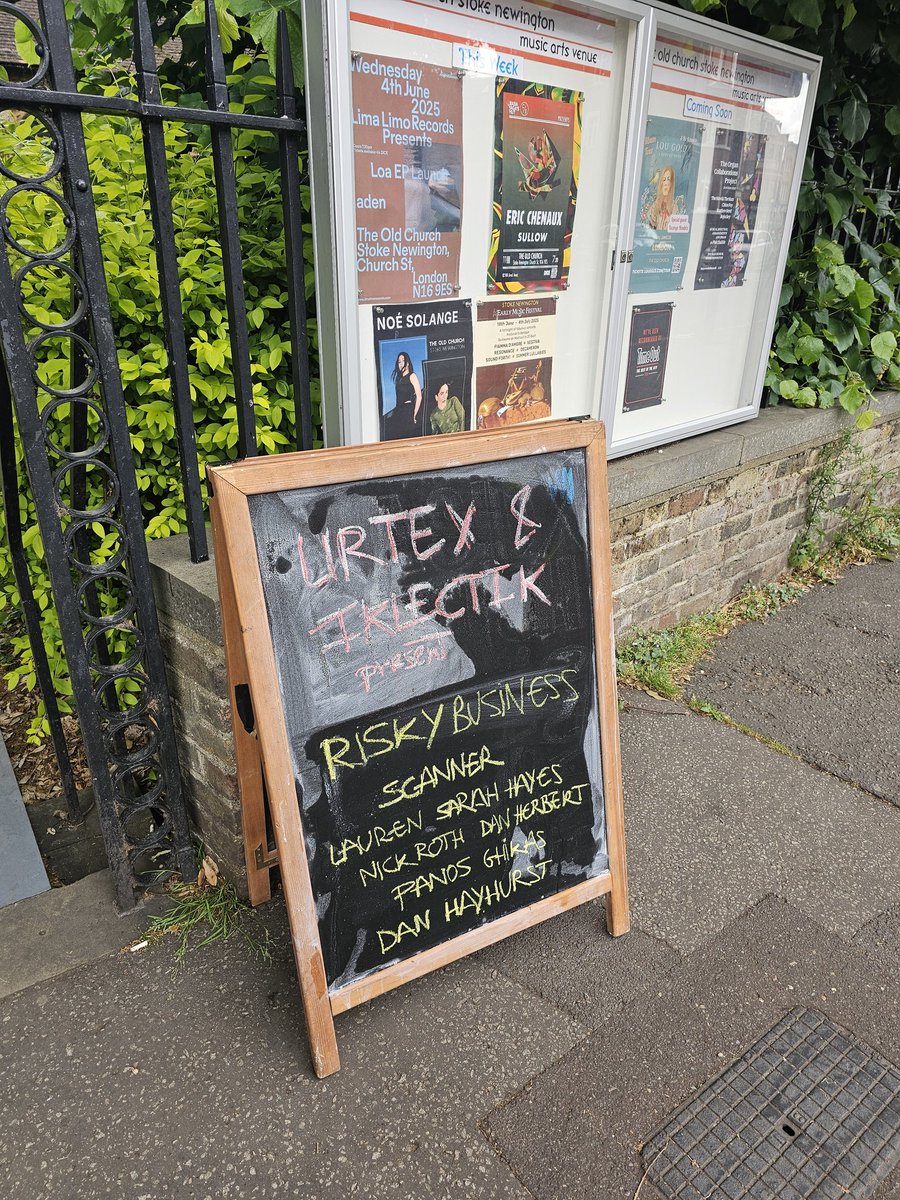 church stoke newington
music arts venue
This week
Wednesday
4th June
2025
Lima Limo Records
Presents
Loa EP Launch
aden
The Old Church
Stoke Newington,
Church St,
London
N16 9ES
ERIC CHENAUX
SULLOW
THE OLD CHURCH
NOÉ SOLANGE
THE OLD CHURCH
STOKE NEWINGTON
STOKE NEWINGTON
EARLY MUSIC FESTIVAL
old church stoke newington
music arts venue
Coming Soon
LOU GOLD
The Organ
Collaborations
Project
TimeOut
URTEX &
IKLECTIK
present
RISKY BUSINESS
SCANNER
LAUREN SARAH HAYES
NICK ROTH DAN HERBERT
PANOS GHIKAS
DAN HAYHURST